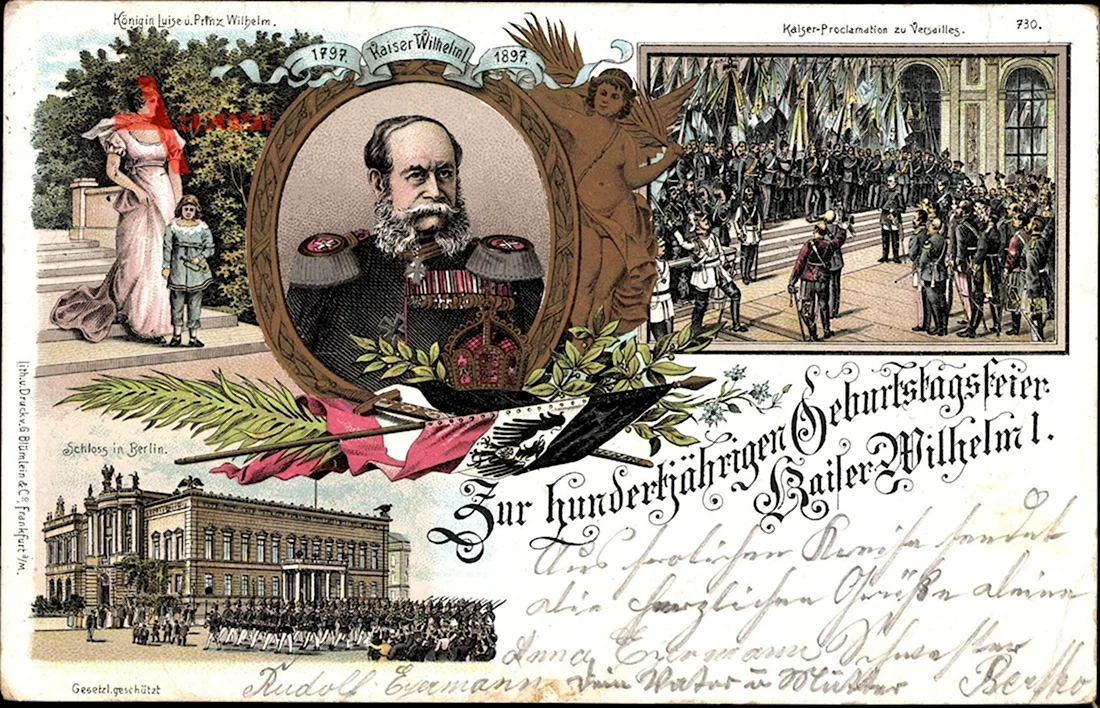 Königin Luise u. Prinz Wilhelm.
1797. Kaiser Wilhelm I. 1897.
Kaiser-Proclamation zu Versailles.
730.
Zur hundertjährigen Geburtstagsfeier
Kaiser Wilhelm I.
Schloss in Berlin.
lith. u. Druck v. G. Blümlein & Co. Frankfurt a/M.
Gesetzl. geschützt
Aus frohlichen Kreise sendet
die herzlichen Grüße deine
Anna Schwester
Rudolf Dein Vater u Mutter